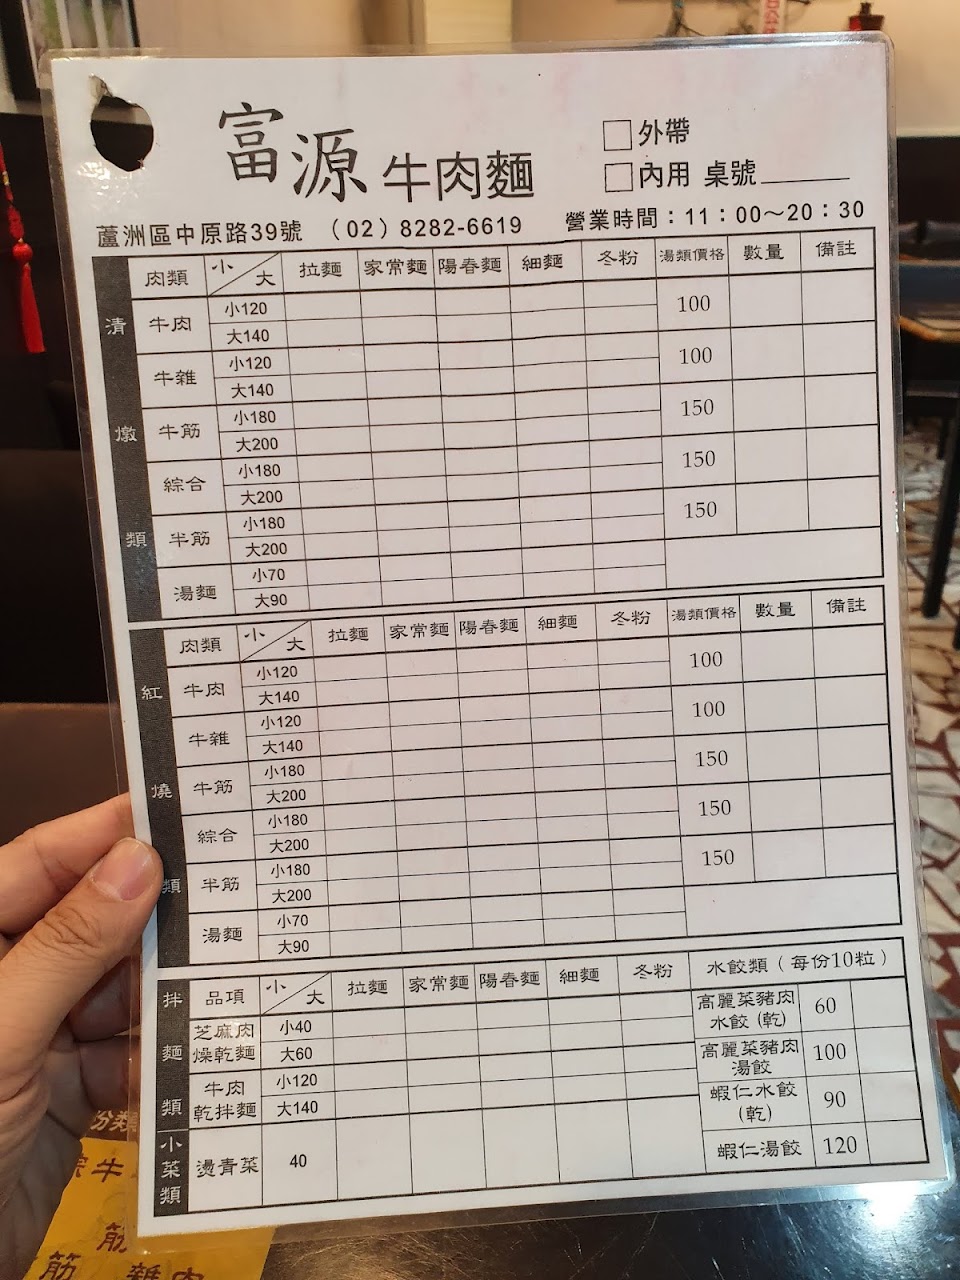 富源 牛肉麵
□外帶
□內用 桌號
蘆洲區中原路39號 (02) 8282-6619 營業時間：11：00～20：30
清燉類
肉類 小 大 拉麵 家常麵 陽春麵 細麵 冬粉 湯類價格 數量 備註
牛肉 小120 100
大140
牛雜 小120 100
大140
牛筋 小180 150
大200
綜合 小180 150
大200
半筋 小180 150
大200
湯麵 小70
大90
紅燒類
肉類 小 大 拉麵 家常麵 陽春麵 細麵 冬粉 湯類價格 數量 備註
牛肉 小120 100
大140
牛雜 小120 100
大140
牛筋 小180 150
大200
綜合 小180 150
大200
半筋 小180 150
大200
湯麵 小70
大90
拌麵類
品項 小 大 拉麵 家常麵 陽春麵 細麵 冬粉 水餃類（每份10粒）
芝麻肉 小40
燥乾麵 大60
牛肉 小120
乾拌麵 大140
高麗菜豬肉 60
水餃 (乾)
高麗菜豬肉 100
湯餃
蝦仁水餃 90
(乾)
蝦仁湯餃 120
小菜類
燙青菜 40
份類
牛
筋
筋 雜肉